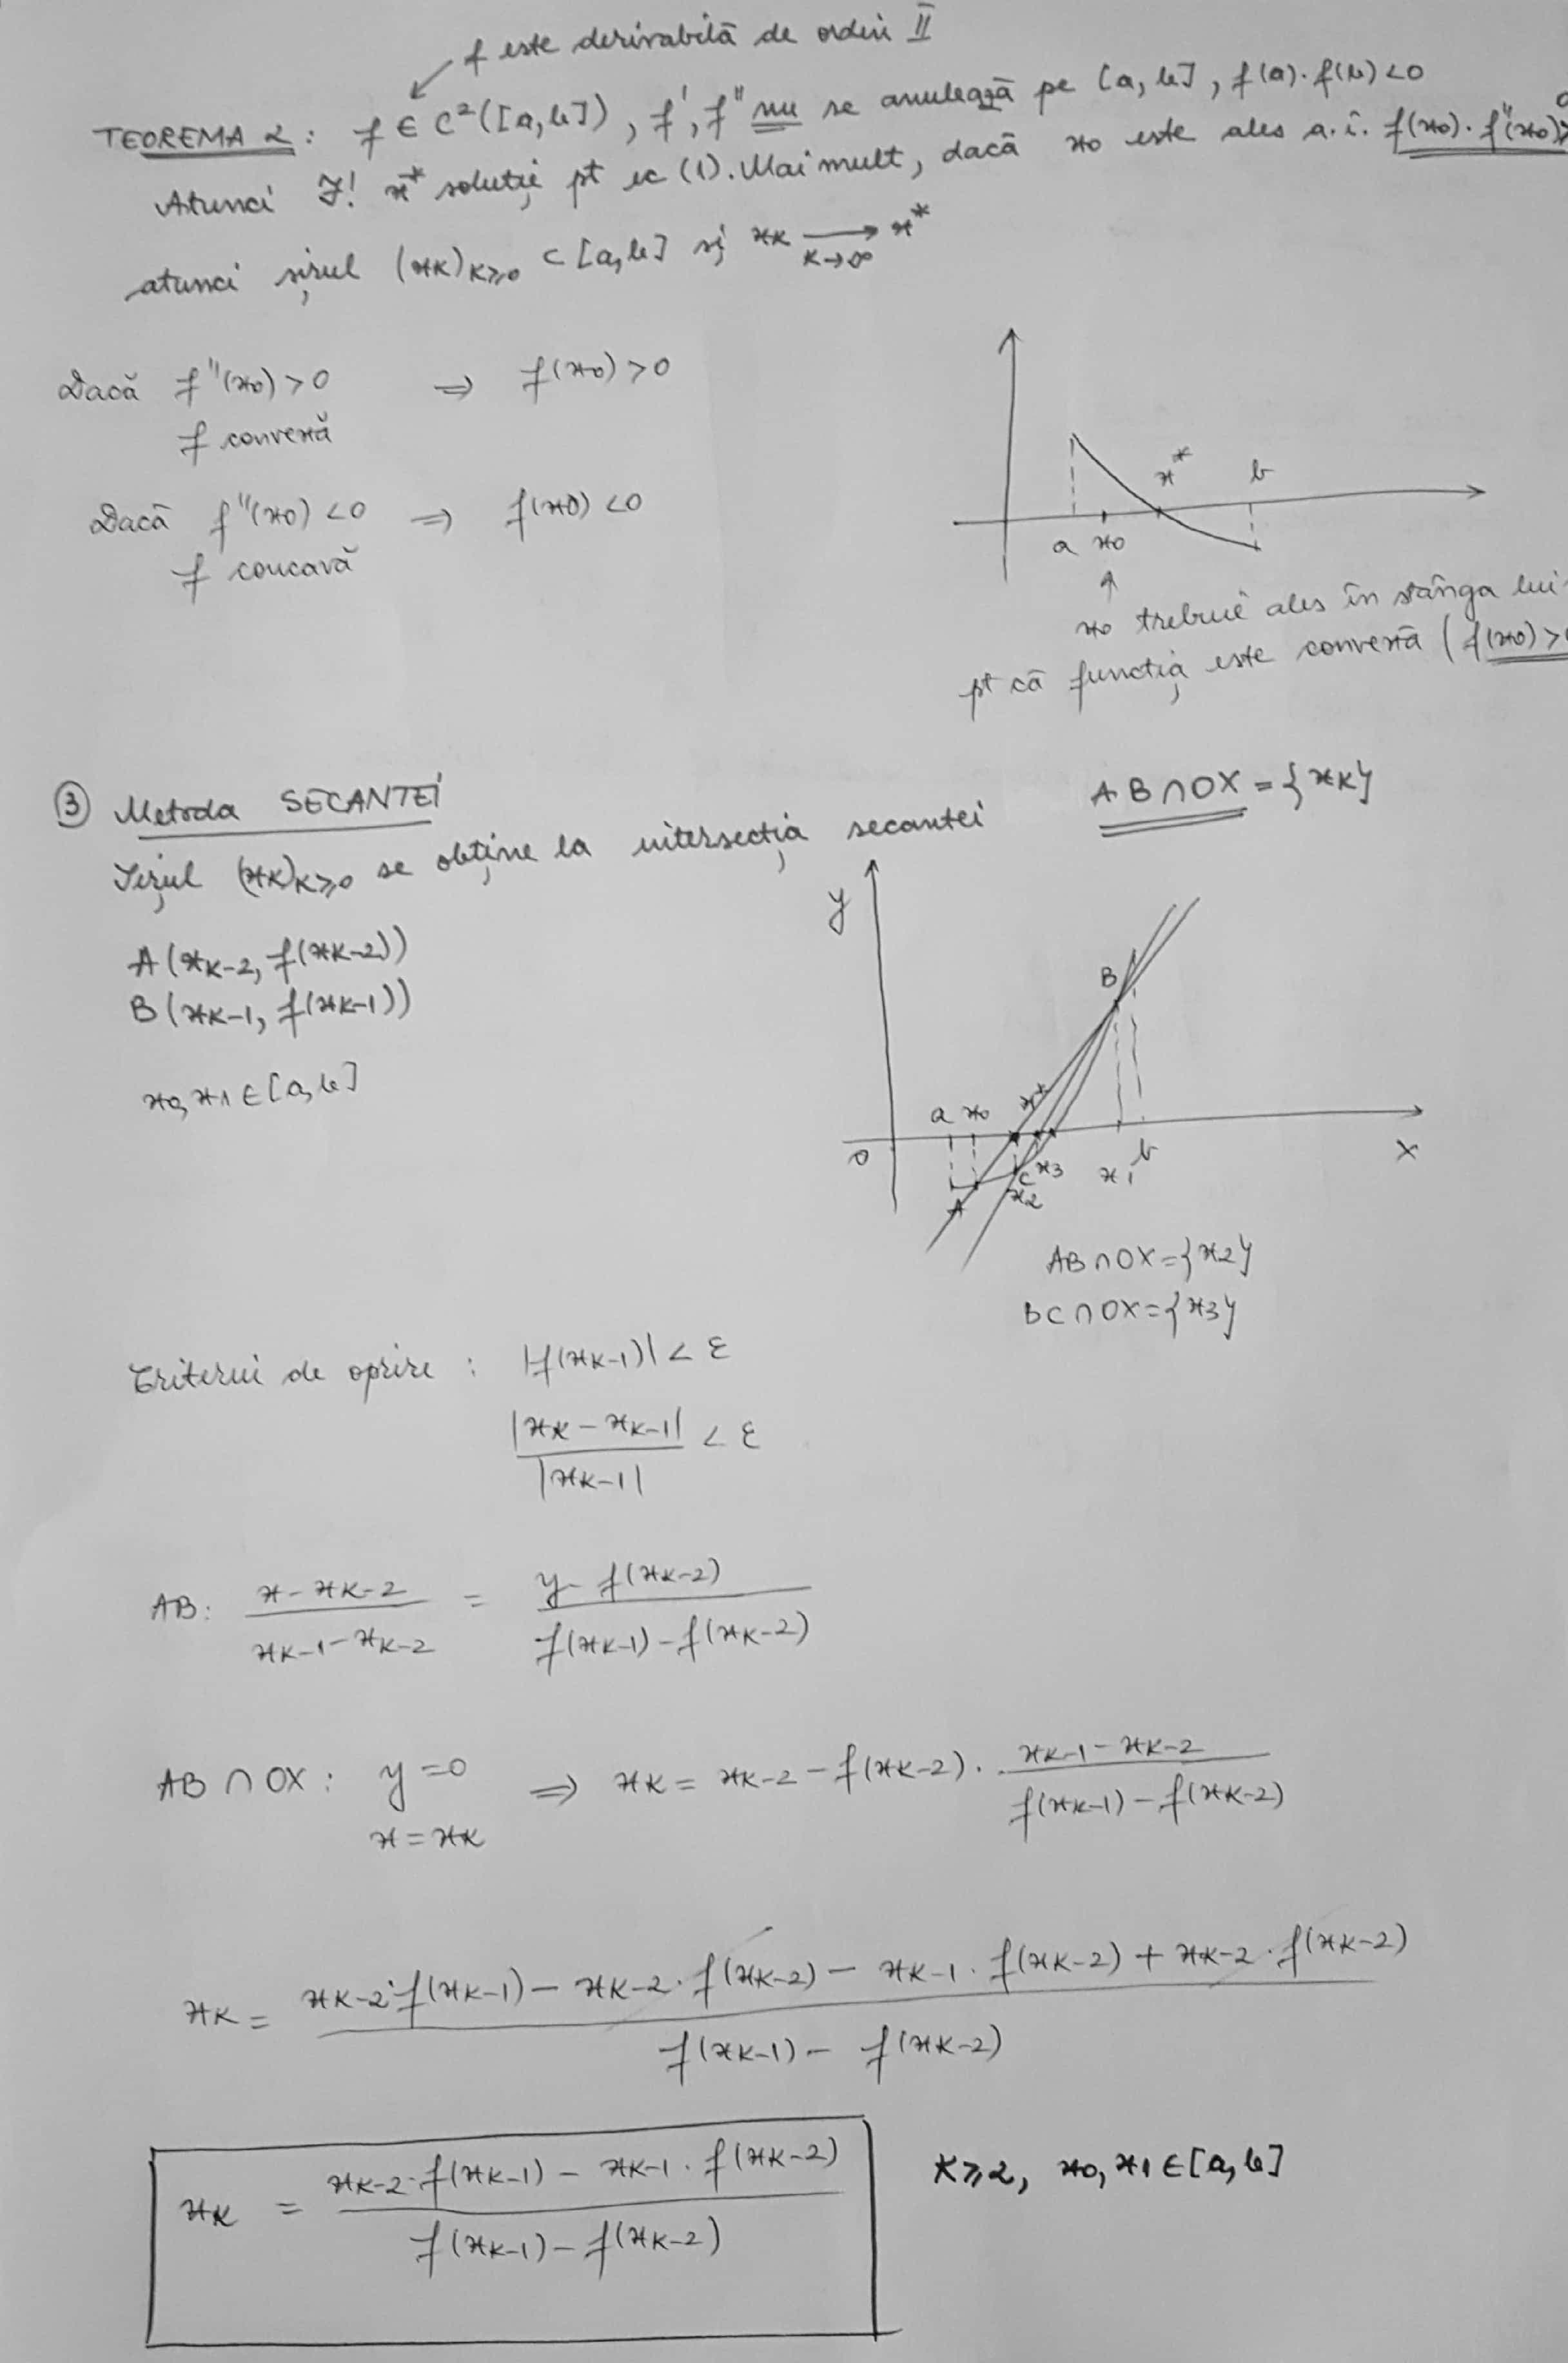 f este derivabilă de ordin II
TEOREMA 2: f ∈ C²([a,b]), f', f'' nu se anulează pe [a,b], f(a)·f(b)<0
Atunci ∃! x* soluție pt ec (1). Mai mult, dacă x0 este ales a.î. f(x0)·f''(x0)>0
atunci șirul (xk)k≥0 ⊂ [a,b] și xk → x* k→∞
Dacă f''(x0)>0 ⇒ f(x0)>0
f convexă
Dacă f''(x0)<0 ⇒ f(x0)<0
f concavă
x* b
a x0
x0 trebuie ales în stânga lui
pt că funcția este convexă (f(x0)>0
③ Metoda SECANTEI
Șirul (xk)k≥0 se obține la intersecția secantei AB∩OX={xk}
A(xk-2, f(xk-2))
B(xk-1, f(xk-1))
x0, x1 ∈ [a,b]
y
B
a x0 x*
O x2 C x3 x1 b x
A
AB∩OX={x2}
BC∩OX={x3}
Criterii de oprire: |f(xk-1)| < ε
|xk - xk-1| / |xk-1| < ε
AB: (x - xk-2) / (xk-1 - xk-2) = (y - f(xk-2)) / (f(xk-1) - f(xk-2))
AB∩OX: y=0 ⇒ xk = xk-2 - f(xk-2) · (xk-1 - xk-2) / (f(xk-1) - f(xk-2))
x = xk
xk = (xk-2·f(xk-1) - xk-2·f(xk-2) - xk-1·f(xk-2) + xk-2·f(xk-2)) / (f(xk-1) - f(xk-2))
xk = (xk-2·f(xk-1) - xk-1·f(xk-2)) / (f(xk-1) - f(xk-2)) k≥2, x0, x1 ∈ [a,b]